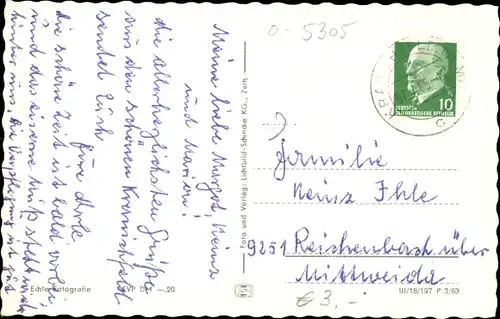 Meine liebe Margot, Heinz
und Marion!
die allerherzlichsten Grüße
aus dem schönen Kranichfeld
sendet Euch
Eure Adele.
die schöne Zeit ist bald vorbei
und das eiserne muß steht wieder
hinter mir. Die Verpflegung ist gut
Echte Fotografie
EVP DM —.20
Foto und Verlag: Lichtbild-Schincke KG., Zeitz
0-5305
DEUTSCHE
DEMOKRATISCHE REPUBLIK
10
Familie
Heinz Ihle
9251 Reichenbach über
Mittweida
€ 3.-
III/18/197 P 3/63